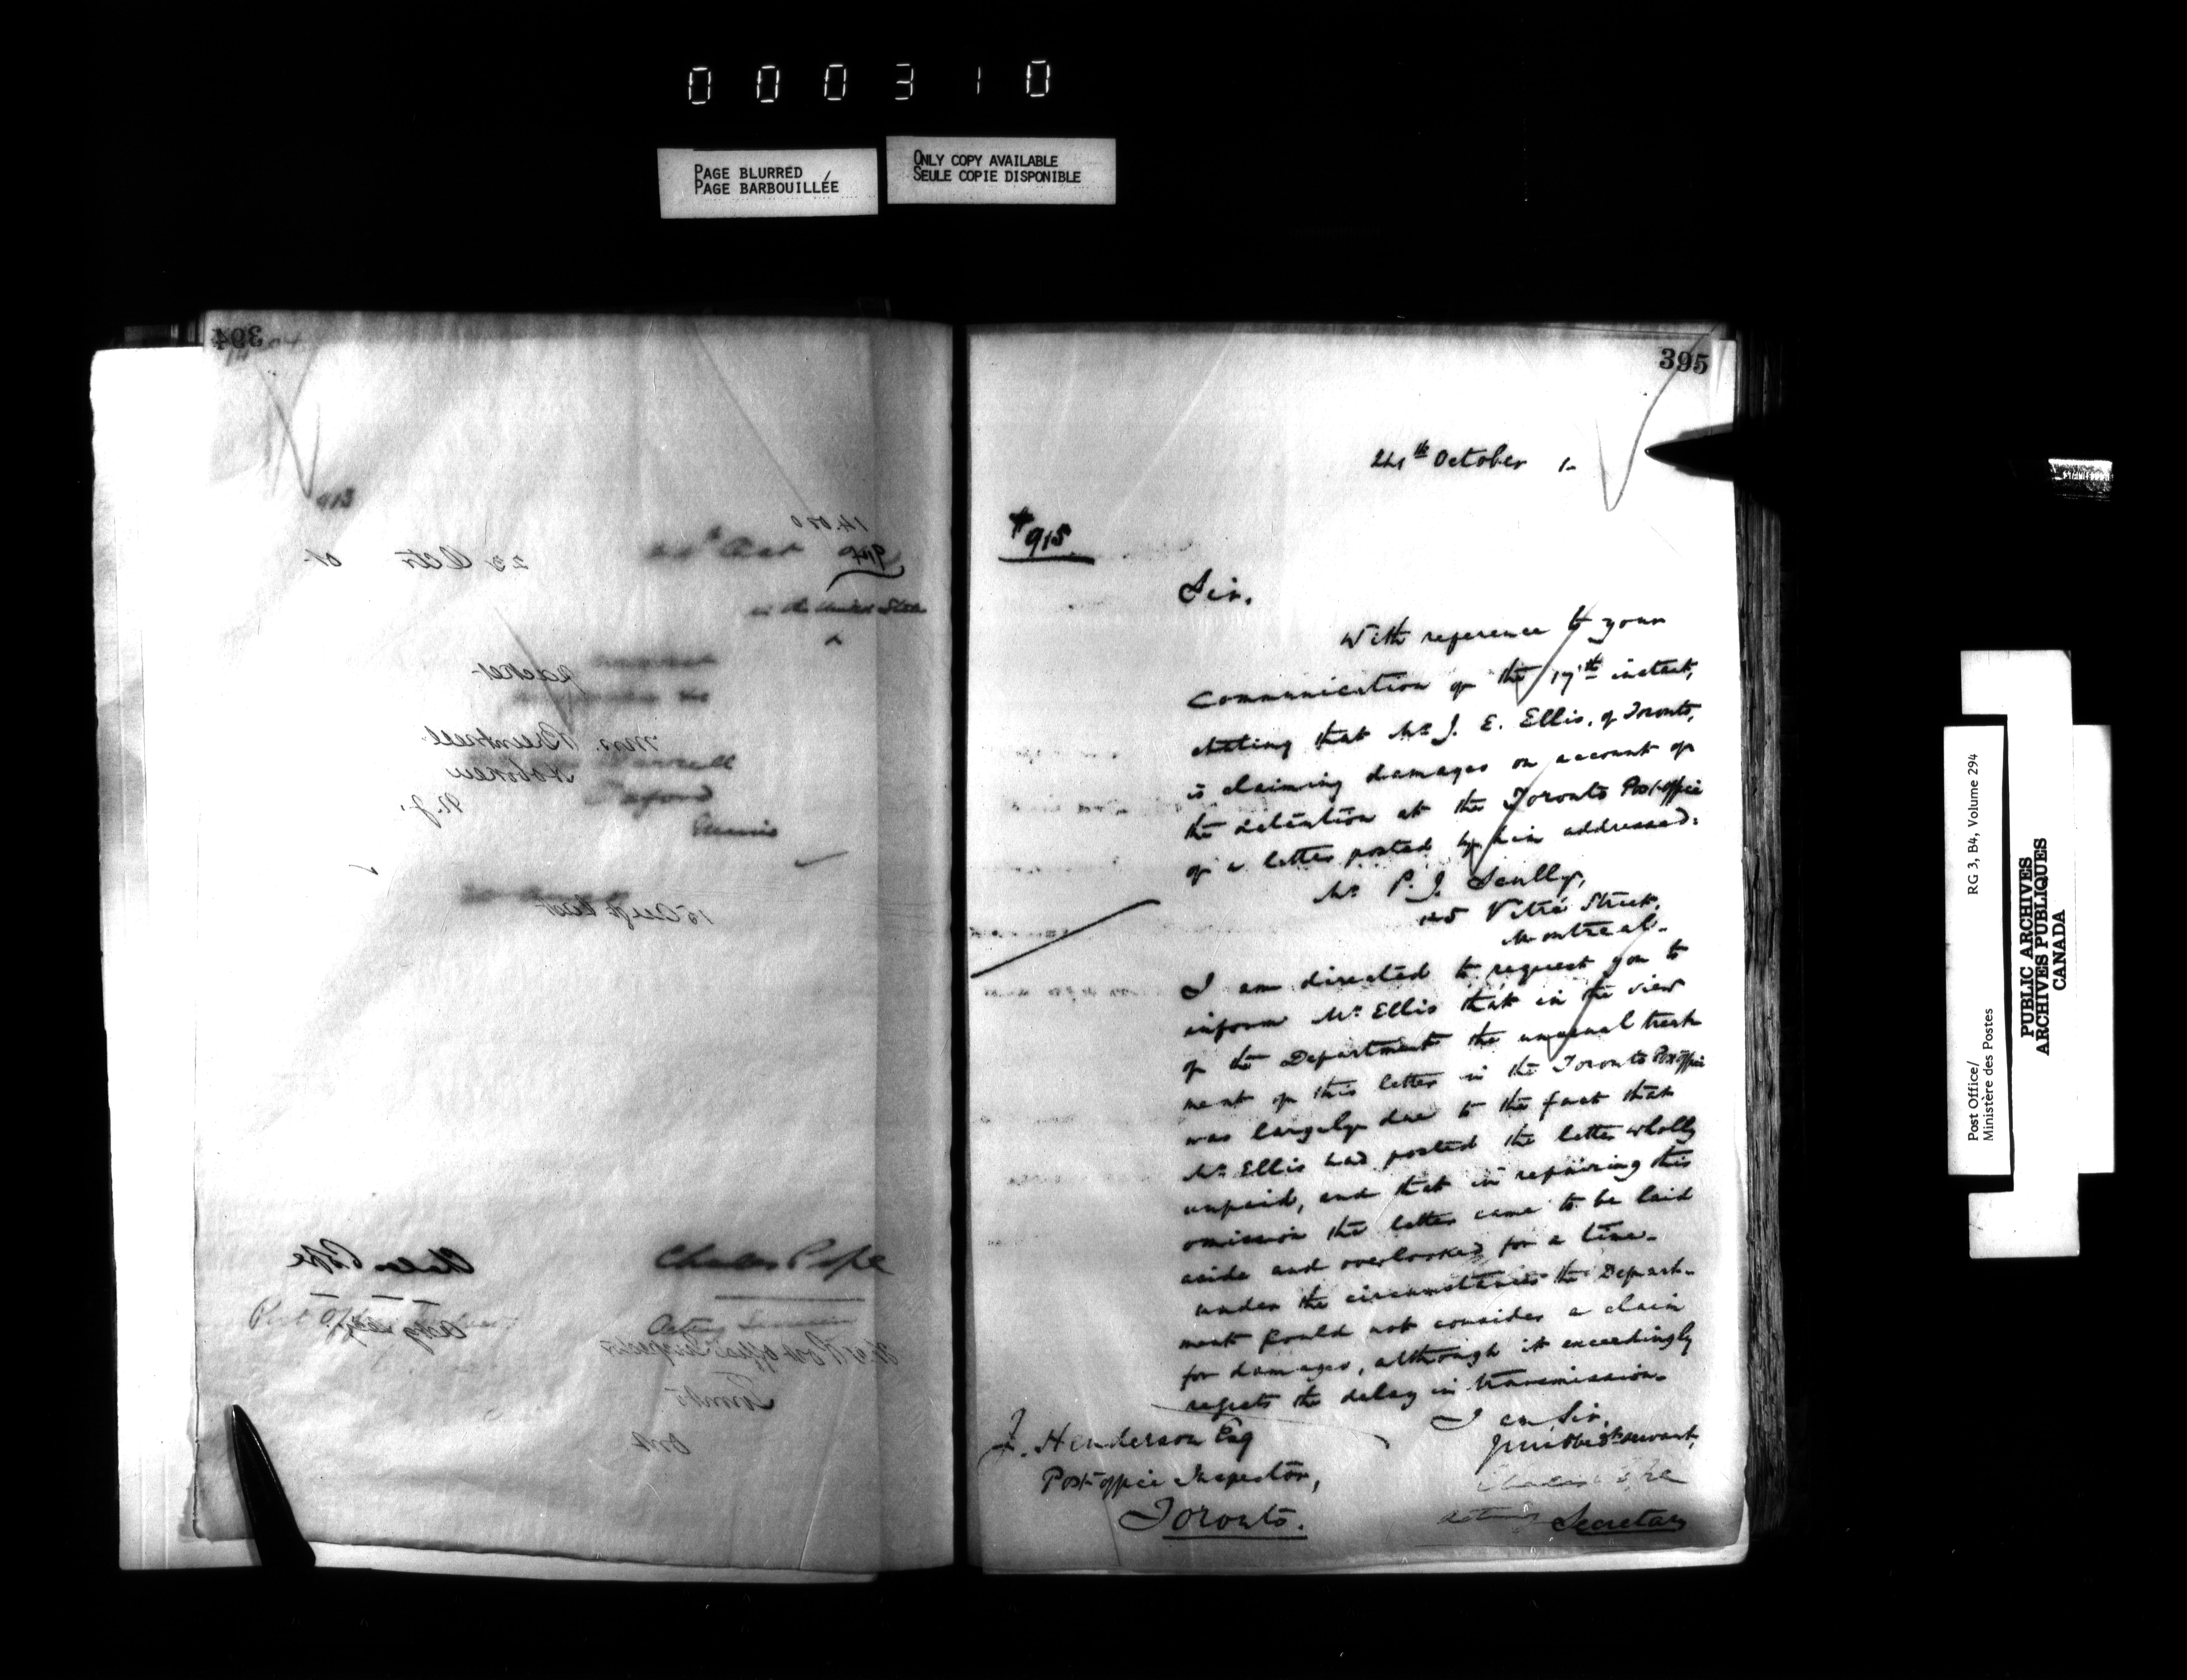 000310
PAGE BLURRED
PAGE BARBOUILLÉE
ONLY COPY AVAILABLE
SEULE COPIE DISPONIBLE
394
913
14.000
914
23 Oct 01
in the United States
packet
Mrs.
N.J.
Illinois
Chales Pope
Chales Pope
Acting
Post Office Inspector
Toronto
Ont
395
24th October 1-
#915
Sir,
With reference to your
communication of the 17th instant,
stating that Mr. J. E. Ellis, of Toronto,
is claiming damages on account of
the detention at the Toronto Post-office
of a letter posted by him addressed:
Mr. P. J. Scully,
125 Vitré Street,
Montreal.
I am directed to request you to
inform Mr. Ellis that in the view
of the Department the unusual treat
ment of this letter in the Toronto Post office
was largely due to the fact that
Mr. Ellis had posted the letter wholly
unpaid, and that in repairing this
omission the letter came to be laid
aside and overlooked for a time.
under the circumstances the Depart-
ment could not consider a claim
for damages, although it exceedingly
regrets the delay in transmission.
I am Sir,
Your obedt servant,
Acting Secretary
J. Henderson Esq
Post-office Inspector,
Toronto.
Post Office/ RG 3, B4, Volume 294
Ministère des Postes
PUBLIC ARCHIVES
ARCHIVES PUBLIQUES
CANADA